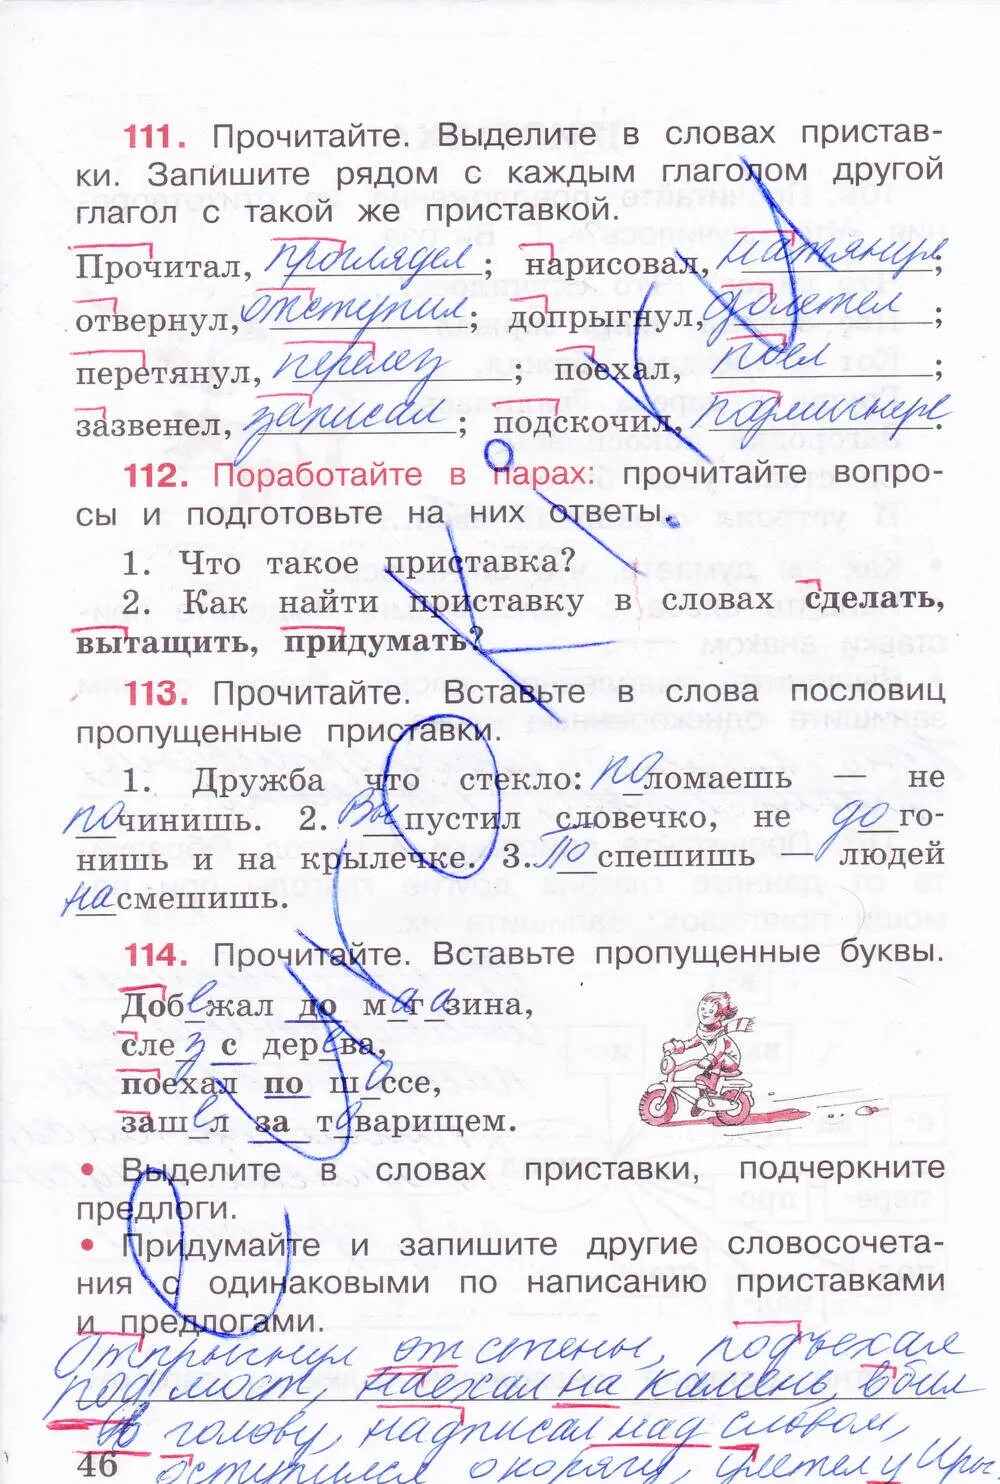 111. Прочитайте. Выделите в словах пристав-
ки. Запишите рядом с каждым глаголом другой
глагол с такой же приставкой.
Прочитал, проглядел; нарисовал, натянул;
отвернул, отступил; допрыгнул, долетел;
перетянул, перелез; поехал, поел;
зазвенел, записал; подскочил, подмигнул.
112. Поработайте в парах: прочитайте вопро-
сы и подготовьте на них ответы.
1. Что такое приставка?
2. Как найти приставку в словах сделать,
вытащить, придумать?
113. Прочитайте. Вставьте в слова пословиц
пропущенные приставки.
1. Дружба что стекло: поломаешь — не
починишь. 2. Выпустил словечко, не дого-
нишь и на крылечке. 3. Поспешишь — людей
насмешишь.
114. Прочитайте. Вставьте пропущенные буквы.
Добежал до магазина,
слез с дерева,
поехал по шоссе,
зашёл за товарищем.
• Выделите в словах приставки, подчеркните
предлоги.
• Придумайте и запишите другие словосочета-
ния с одинаковыми по написанию приставками
и предлогами.
Отпрыгнул от стены, подъехал
под мост, наехал на камень, вбил
в голову, надписал над словом,
46 оступился о корягу, улетел у Иры